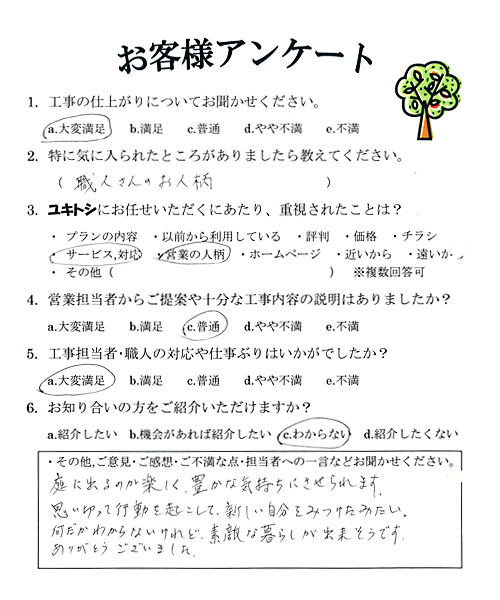 お客様アンケート
1. 工事の仕上がりについてお聞かせください。
a.大変満足 b.満足 c.普通 d.やや不満 e.不満
2. 特に気に入られたところがありましたら教えてください。
( 職人さんのお人柄 )
3. ユキトシにお任せいただくにあたり、重視されたことは？
・プランの内容 ・以前から利用している ・評判 ・価格 ・チラシ
・サービス,対応 ・営業の人柄 ・ホームページ ・近いから ・遠いから
・その他( ) ※複数回答可
4. 営業担当者からご提案や十分な工事内容の説明はありましたか？
a.大変満足 b.満足 c.普通 d.やや不満 e.不満
5. 工事担当者・職人の対応や仕事ぶりはいかがでしたか？
a.大変満足 b.満足 c.普通 d.やや不満 e.不満
6. お知り合いの方をご紹介いただけますか？
a.紹介したい b.機会があれば紹介したい c.わからない d.紹介したくない
・その他,ご意見・ご感想・ご不満な点・担当者への一言などお聞かせください。
庭に出るのが楽しく、豊かな気持ちにさせられます。
思い切って行動を起こして、新しい自分をみつけたみたい。
何だかわからないけれど、素敵な暮らしが出来そうです。
ありがとうございました。